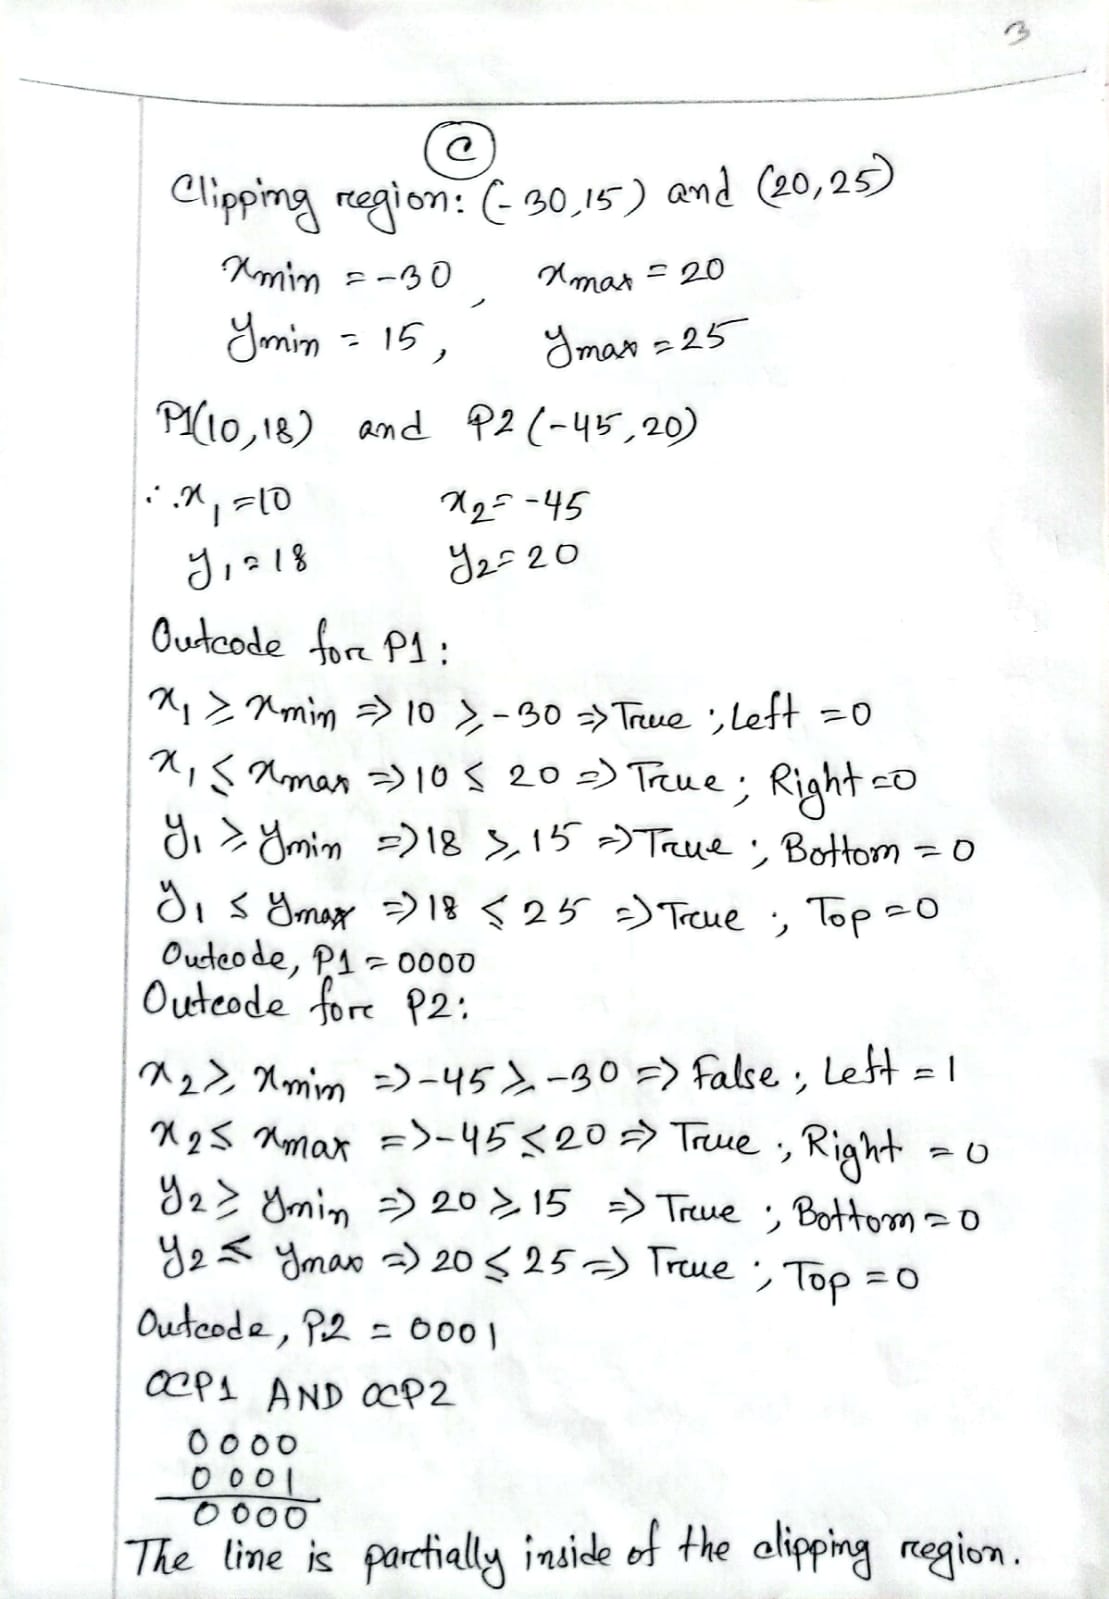 3
C
Clipping region: (-30,15) and (20,25)
xmin = -30, xmax = 20
ymin = 15, ymax = 25
P1(10,18) and P2(-45,20)
∴ x1 = 10 x2 = -45
y1 = 18 y2 = 20
Outcode for P1:
x1 ≥ xmin ⇒ 10 ≥ -30 ⇒ True ; Left = 0
x1 ≤ xmax ⇒ 10 ≤ 20 ⇒ True ; Right = 0
y1 ≥ ymin ⇒ 18 ≥ 15 ⇒ True ; Bottom = 0
y1 ≤ ymax ⇒ 18 ≤ 25 ⇒ True ; Top = 0
Outcode, P1 = 0000
Outcode for P2:
x2 ≥ xmin ⇒ -45 ≥ -30 ⇒ False ; Left = 1
x2 ≤ xmax ⇒ -45 ≤ 20 ⇒ True ; Right = 0
y2 ≥ ymin ⇒ 20 ≥ 15 ⇒ True ; Bottom = 0
y2 ≤ ymax ⇒ 20 ≤ 25 ⇒ True ; Top = 0
Outcode, P2 = 0001
OCP1 AND OCP2
0000
0001
0000
The line is partially inside of the clipping region.